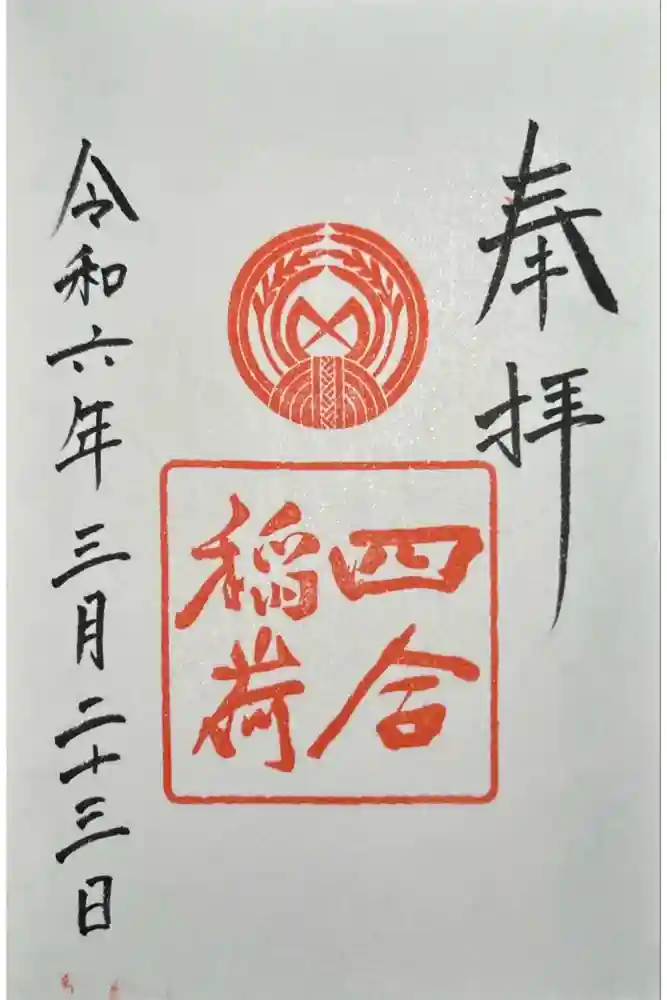 奉拝
四合
稲荷
令和六年三月二十三日